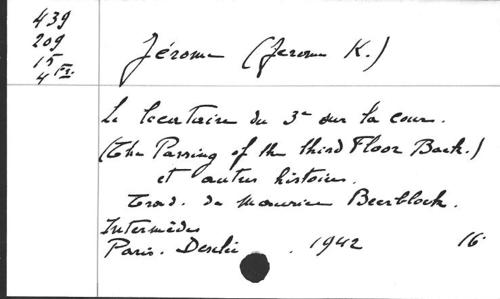 439
209
15
4 Fs.
Jérome (Jerome K.)
Le locataire du 3e sur la cour.
(The Passing of the third Floor Back.)
et autres histoires.
Trad. de Maurice Beerblock.
Intermèdes
Paris. Desclée . 1942 16°